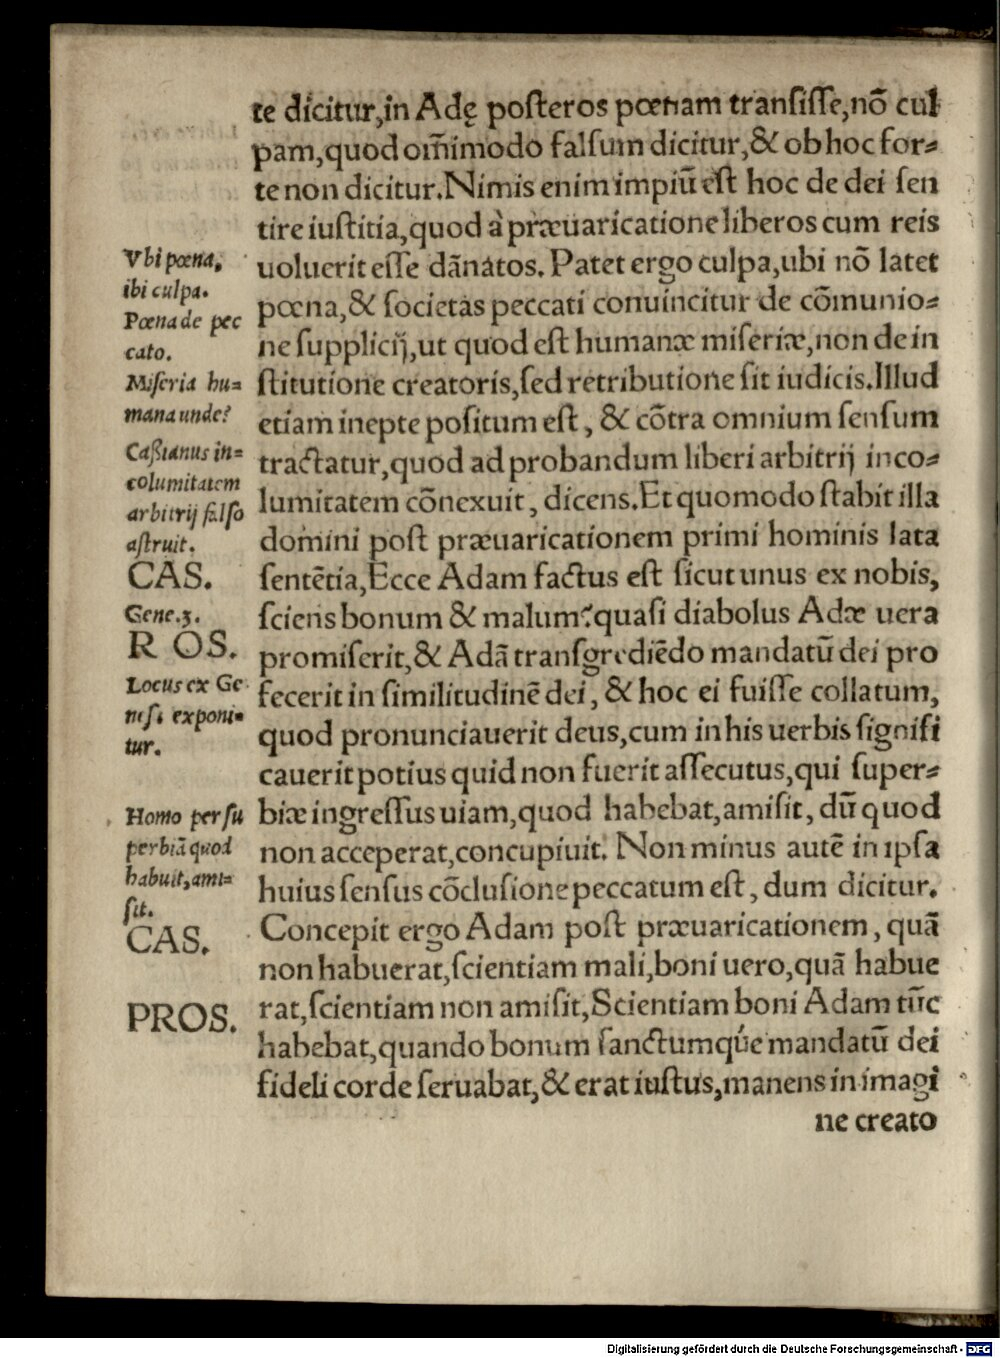 te dicitur,in Adę posteros pœnam transisse,nō cul
pam,quod om̄imodo falsum dicitur,& ob hoc for=
te non dicitur.Nimis enim impiū est hoc de dei sen
tire iustitia,quod à præuaricatione liberos cum reis
uoluerit esse dānatos. Patet ergo culpa,ubi nō latet
pœna,& societas peccati conuincitur de cōmunio=
ne supplicij,ut quod est humanæ miseriæ,non de in
stitutione creatoris,sed retributione sit iudicis.Illud
etiam inepte positum est, & cōtra omnium sensum
tractatur,quod ad probandum liberi arbitrij inco=
lumitatem cōnexuit, dicens.Et quomodo stabit illa
domini post præuaricationem primi hominis lata
sentētia,Ecce Adam factus est sicut unus ex nobis,
sciens bonum & malum?quasi diabolus Adæ uera
promiserit,& Adā transgrediēdo mandatū dei pro
fecerit in similitudinē dei, & hoc ei fuisse collatum,
quod pronunciauerit deus,cum in his uerbis signifi
cauerit potius quid non fuerit assecutus,qui super=
biæ ingressus uiam,quod habebat,amisit, dū quod
non acceperat,concupiuit. Non minus autē in ipsa
huius sensus cōclusione peccatum est, dum dicitur.
Concepit ergo Adam post præuaricationem, quā
non habuerat,scientiam mali,boni uero,quā habue
rat,scientiam non amisit,Scientiam boni Adam tūc
habebat,quando bonum sanctumq́ue mandatū dei
fideli corde seruabat,& erat iustus,manens in imagi
ne creato
Vbi pœna,
ibi culpa.
Pœna de pec
cato.
Miseria hu=
mana unde?
Caßianus in=
columitatem
arbitrij falso
astruit.
CAS.
Gene.3.
R OS.
Locus ex Ge
nesi exponi=
tur.
Homo per su
perbiā quod
habuit,ami=
sit.
CAS.
PROS.
Digitalisierung gefördert durch die Deutsche Forschungsgemeinschaft - DFG